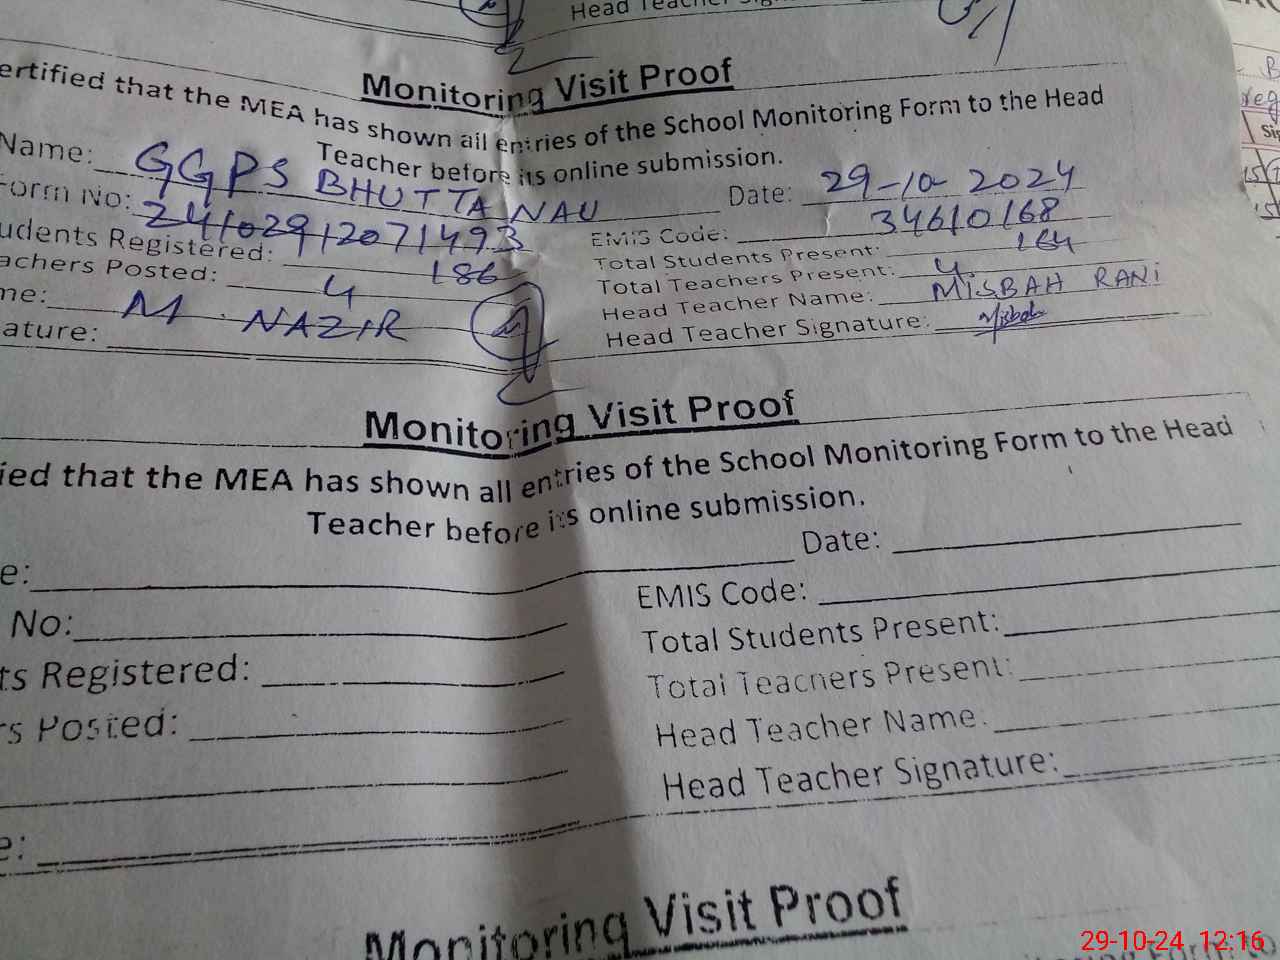 Head Teacher
Monitoring Visit Proof
ertified that the MEA has shown all entries of the School Monitoring Form to the Head
Teacher before its online submission.
Name: GGPS BHUTTA NAU Date: 29-10-2024
Form No: 24102912071493 EMIS Code: 34610168
udents Registered: 186 Total Students Present: 164
achers Posted: 4 Total Teachers Present: 4
me: M. NAZIR Head Teacher Name: MISBAH RANI
ature: Head Teacher Signature: Misbah
Monitoring Visit Proof
ied that the MEA has shown all entries of the School Monitoring Form to the Head
Teacher before its online submission.
e: Date:
No: EMIS Code:
ts Registered: Total Students Present:
rs Posted: Total Teachers Present:
Head Teacher Name:
e: Head Teacher Signature:
Monitoring Visit Proof
29-10-24 12:16